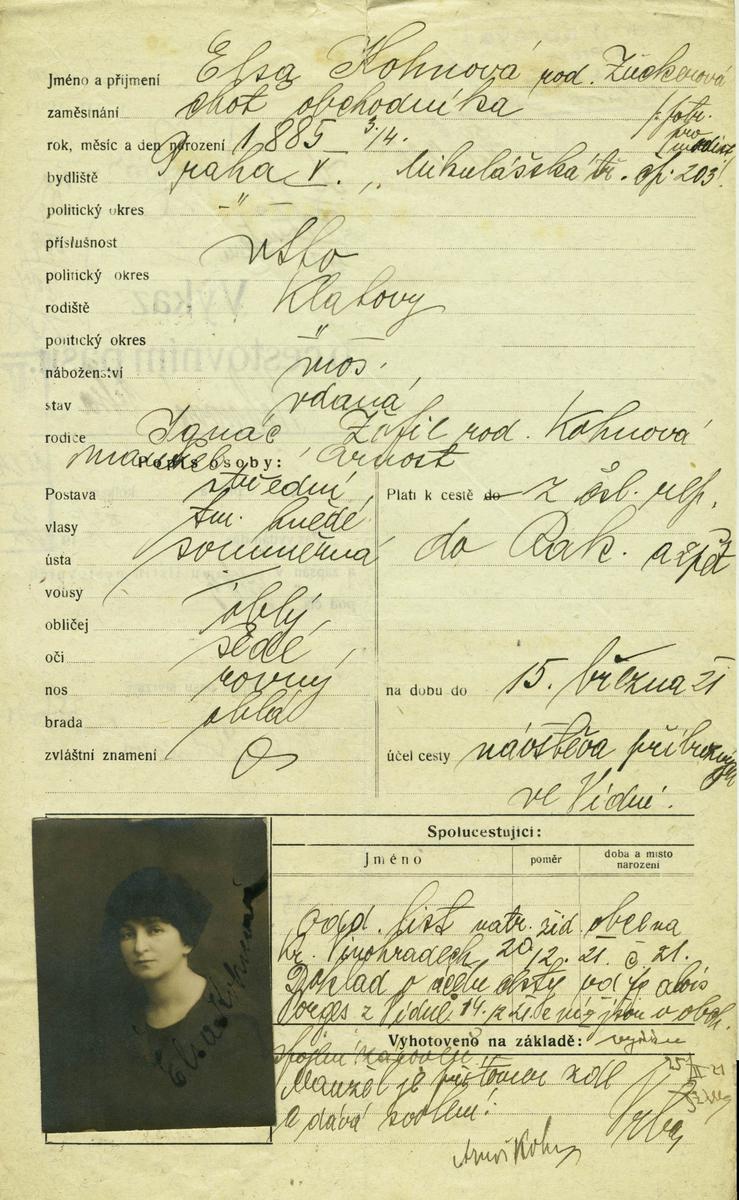 Jméno a příjmení Elsa Kohnová rod. Zuckerová
zaměstnání choť obchodníka
rok, měsíc a den narození 1885 3/4.
bydliště Praha V., Mikulášská tř. čp. 203
politický okres -"-
příslušnost
politický okres
rodiště Klatovy
politický okres -"-
náboženství mos.
stav vdaná
rodiče Ignác Žofie rod. Kohnová
manžel Arnošt
Popis osoby:
Postava střední
vlasy tm. hnědé
ústa souměrná
vousy /
obličej oblý
oči šedé
nos rovný
brada oblá
zvláštní znamení
Platí k cestě do z čsl. rep.
do Rak. a zpět
na dobu do 15. března 21
účel cesty návštěva příbuzných
ve Vídni.
Spolucestující:
Jméno poměr doba a místo narození
odd. list matr. žid. obce na
Kr. Vinohradech 20/12. 21. č 21.
Doklad o účelu cesty od Alois
Porges z Vídně 14.
Vyhotoveno na základě:
Manžel je přítomen zde
a dává svolení!
Elsa Kohnová